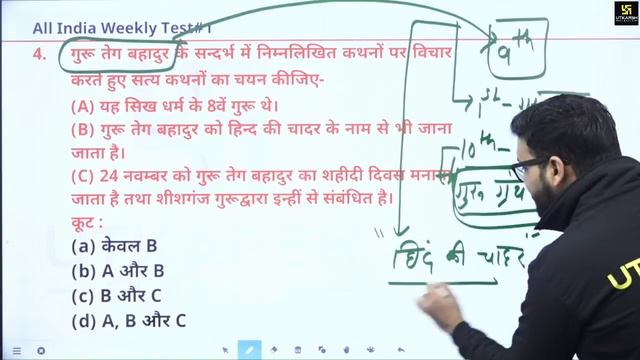 All India Weekly Test#1
UTKARSH
4. गुरू तेग बहादुर के सन्दर्भ में निम्नलिखित कथनों पर विचार
करते हुए सत्य कथनों का चयन कीजिए-
(A) यह सिख धर्म के 8वें गुरू थे।
(B) गुरू तेग बहादुर को हिन्द की चादर के नाम से भी जाना
जाता है।
(C) 24 नवम्बर को गुरू तेग बहादुर का शहीदी दिवस मनाया
जाता है तथा शीशगंज गुरूद्वारा इन्हीं से संबंधित है।
कूट :
(a) केवल B
(b) A और B
(c) B और C
(d) A, B और C
9th
1st -
10th -
गुरु ग्रंथ
हिंद की चादर
UT